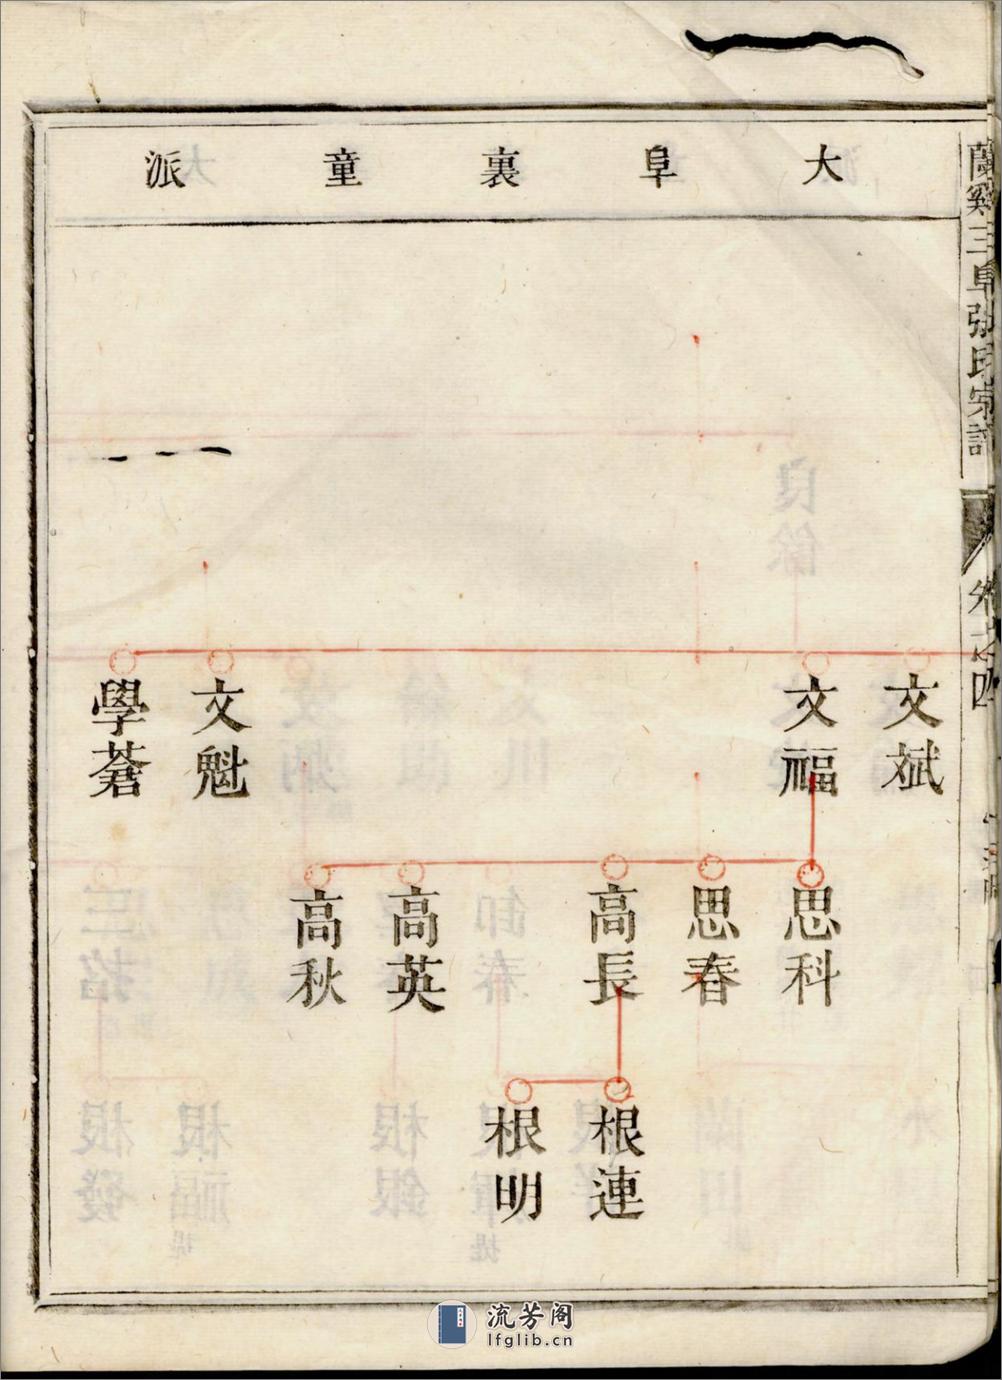 大阜裏童派
蘭谿三阜張氏宗譜
文斌
文福
文魁
學蒼
思科
思春
高長
高英
高秋
根連
根明
流芳阁
lfglib.cn